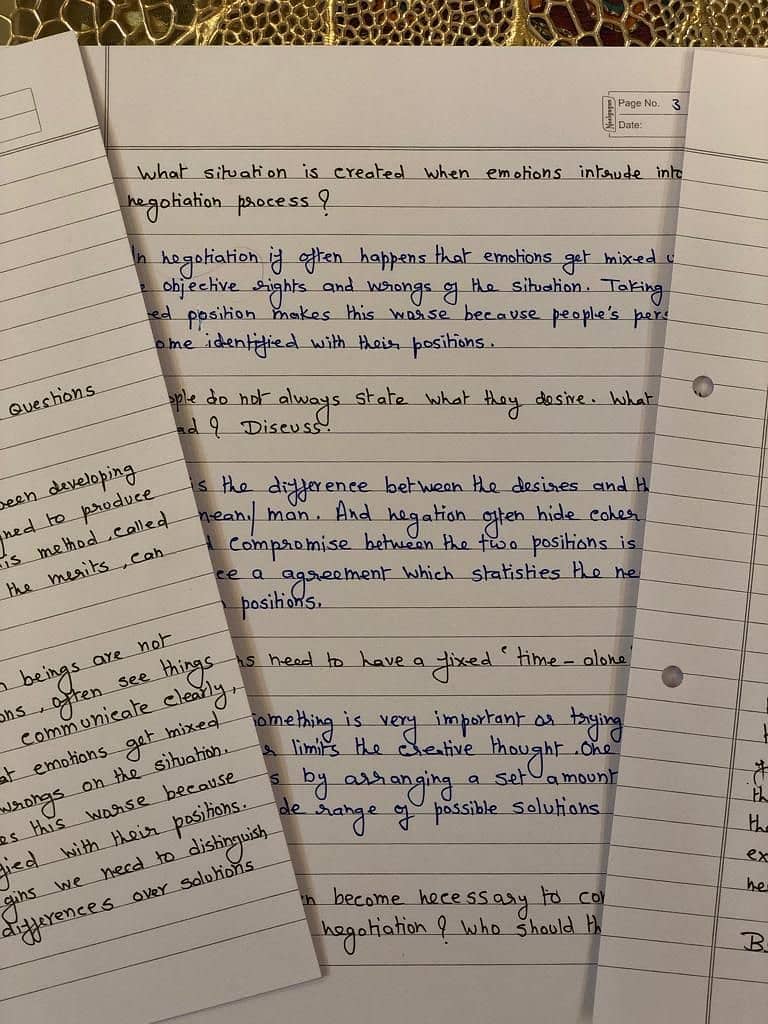 Page No. 3
Date:
What situation is created when emotions intrude into
negotiation process ?
In negotiation if often happens that emotions get mixed
objective rights and wrongs of the situation. Taking
ed position makes this worse because people's pers
ome identified with their positions.
ople do not always state what they desire. What
ad ? Discuss.
is the difference between the desires and th
mean/ man. And negation often hide coher
compromise between the two positions is
ce a agreement which statisties the ne
positions.
ns need to have a fixed 'time - alone'
something is very important or trying
limits the creative thought. One
s by arranging a set amount
de range of possible solutions
n become necessary to co
negotiation ? Who should th
Questions
been developing
ned to produce
is method, called
the merits, can
n beings are not
ons, often see things
communicate clearly,
at emotions get mixed
wrongs on the situation.
es this worse because
fied with their positions.
gins we need to distinguish
differences over solutions
th
the
ex
he
B